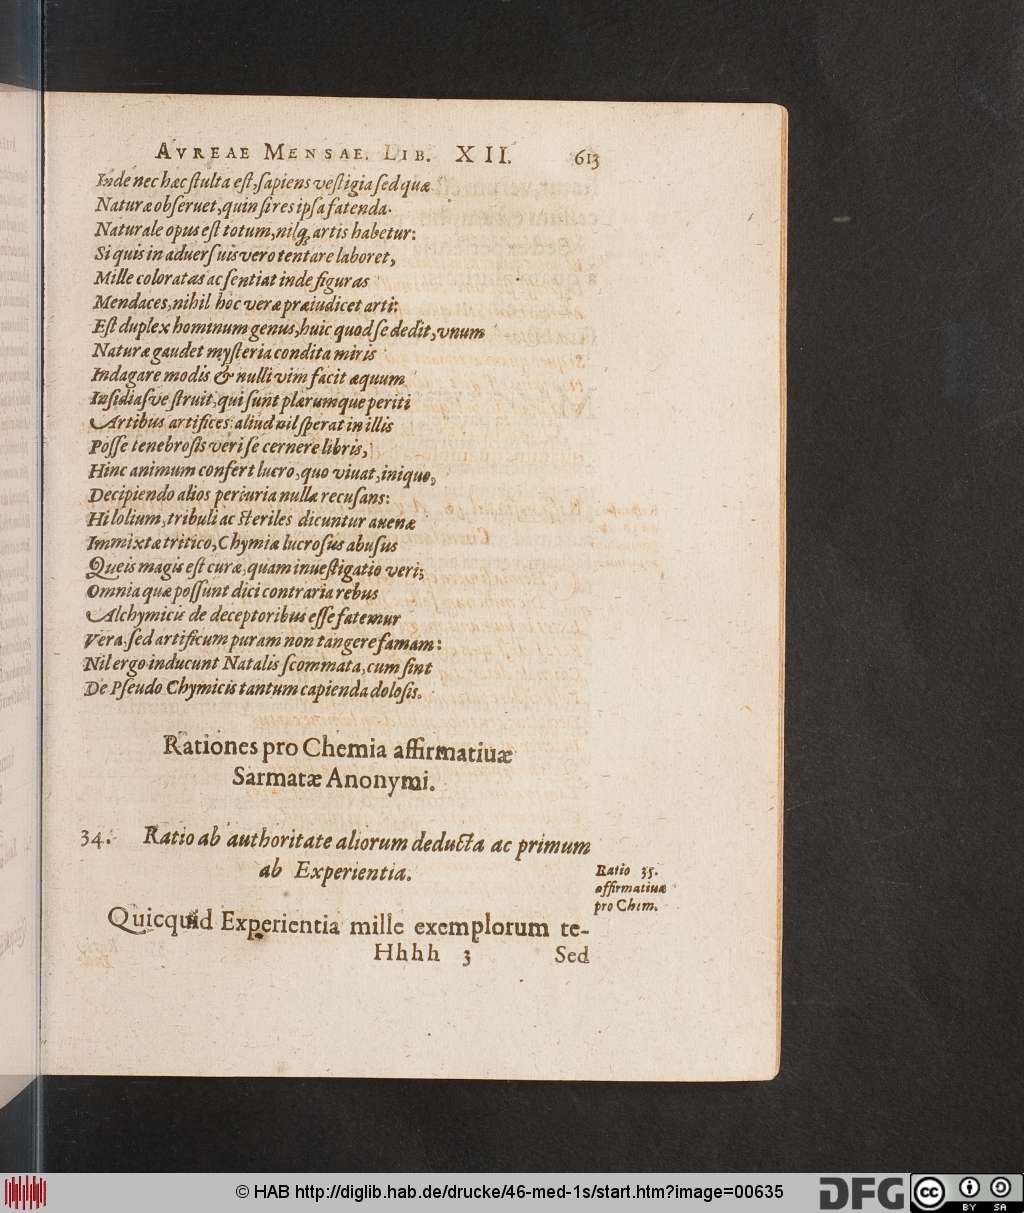 AVREAE MENSAE. LIB. XII. 613
Inde nec hæc stulta est, sapiens vestigia sed quæ
Naturæ obseruet, quin si res ipsa fatenda.
Naturale opus est totum, nilq; artis habetur:
Si quis in aduersuis vero tentare laboret,
Mille coloratas ac sentiat inde figuras
Mendaces, nihil hoc veræ præiudicet arti:
Est duplex hominum genus, huic quod se dedit, vnum
Naturæ gaudet mysteria condita miris
Indagare modis & nulli vim facit æquum
Insidiasve struit, qui sunt plærumque periti
Artibus artifices: aliud nil sperat in illis
Posse tenebrosis veri se cernere libris,
Hinc animum confert lucro, quo viuat, iniquo,
Decipiendo alios periuria nulla recusans:
Hi lolium, tribuli ac steriles dicuntur auenæ
Immixtæ tritico, Chymiæ lucrosus abusus
Queis magis est curæ, quam inuestigatio veri;
Omnia quæ possunt dici contraria rebus
Alchymicis de deceptoribus esse fatemur
Vera. sed artificum puram non tangere famam:
Nil ergo inducunt Natalis scommata, cum sint
De Pseudo Chymicis tantum capienda dolosis.
Rationes pro Chemia affirmatiuæ
Sarmatæ Anonymi.
34. Ratio ab authoritate aliorum deducta ac primum
ab Experientia.
Ratio 35.
affirmatiuæ
pro Chem.
Quicquid Experientia mille exemplorum te-
Hhhh 3 Sed
© HAB http://diglib.hab.de/drucke/46-med-1s/start.htm?image=00635
DFG
cc BY SA